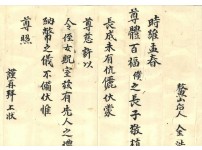 鰲山后人 金洪
時維孟春
尊體百福僕之長子敬
長成未有伉儷伏蒙
尊慈許以
令侄女貺室玆有先人之禮
納幣之儀不備伏惟
尊照
謹再拜上狀